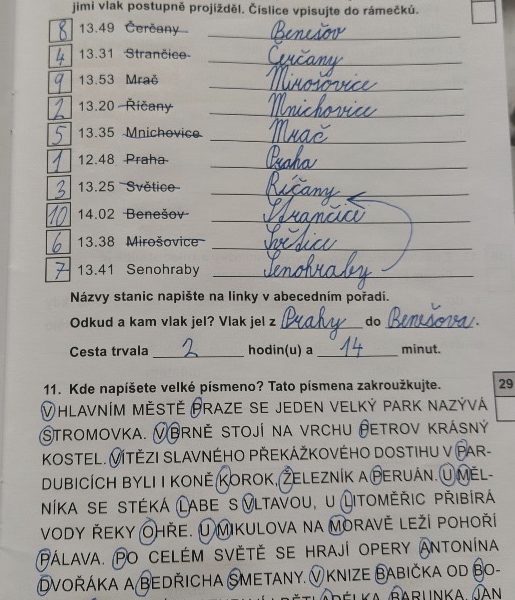 jimi vlak postupně projížděl. Číslice vpisujte do rámečků.
8 13.49 Čerčany Benešov
4 13.31 Strančice Čerčany
9 13.53 Mrač Mirošovice
2 13.20 Říčany Mnichovice
5 13.35 Mnichovice Mrač
1 12.48 Praha Praha
3 13.25 Světice Říčany
10 14.02 Benešov Strančice
6 13.38 Mirošovice Světice
7 13.41 Senohraby Senohraby
Názvy stanic napište na linky v abecedním pořadí.
Odkud a kam vlak jel? Vlak jel z Prahy do Benešova.
Cesta trvala 2 hodin(u) a 14 minut.
11. Kde napíšete velké písmeno? Tato písmena zakroužkujte. 29
V HLAVNÍM MĚSTĚ PRAZE SE JEDEN VELKÝ PARK NAZÝVÁ
STROMOVKA. V BRNĚ STOJÍ NA VRCHU PETROV KRÁSNÝ
KOSTEL. VÍTĚZI SLAVNÉHO PŘEKÁŽKOVÉHO DOSTIHU V PAR-
DUBICÍCH BYLI I KONĚ KOROK, ŽELEZNÍK A PERUÁN. U MĚL-
NÍKA SE STÉKÁ LABE S VLTAVOU, U LITOMĚŘIC PŘIBÍRÁ
VODY ŘEKY OHŘE. U MIKULOVA NA MORAVĚ LEŽÍ POHOŘÍ
PÁLAVA. PO CELÉM SVĚTĚ SE HRAJÍ OPERY ANTONÍNA
DVOŘÁKA A BEDŘICHA SMETANY. V KNIZE BABIČKA OD BO-
ADÉLKA, BARUNKA, JAN